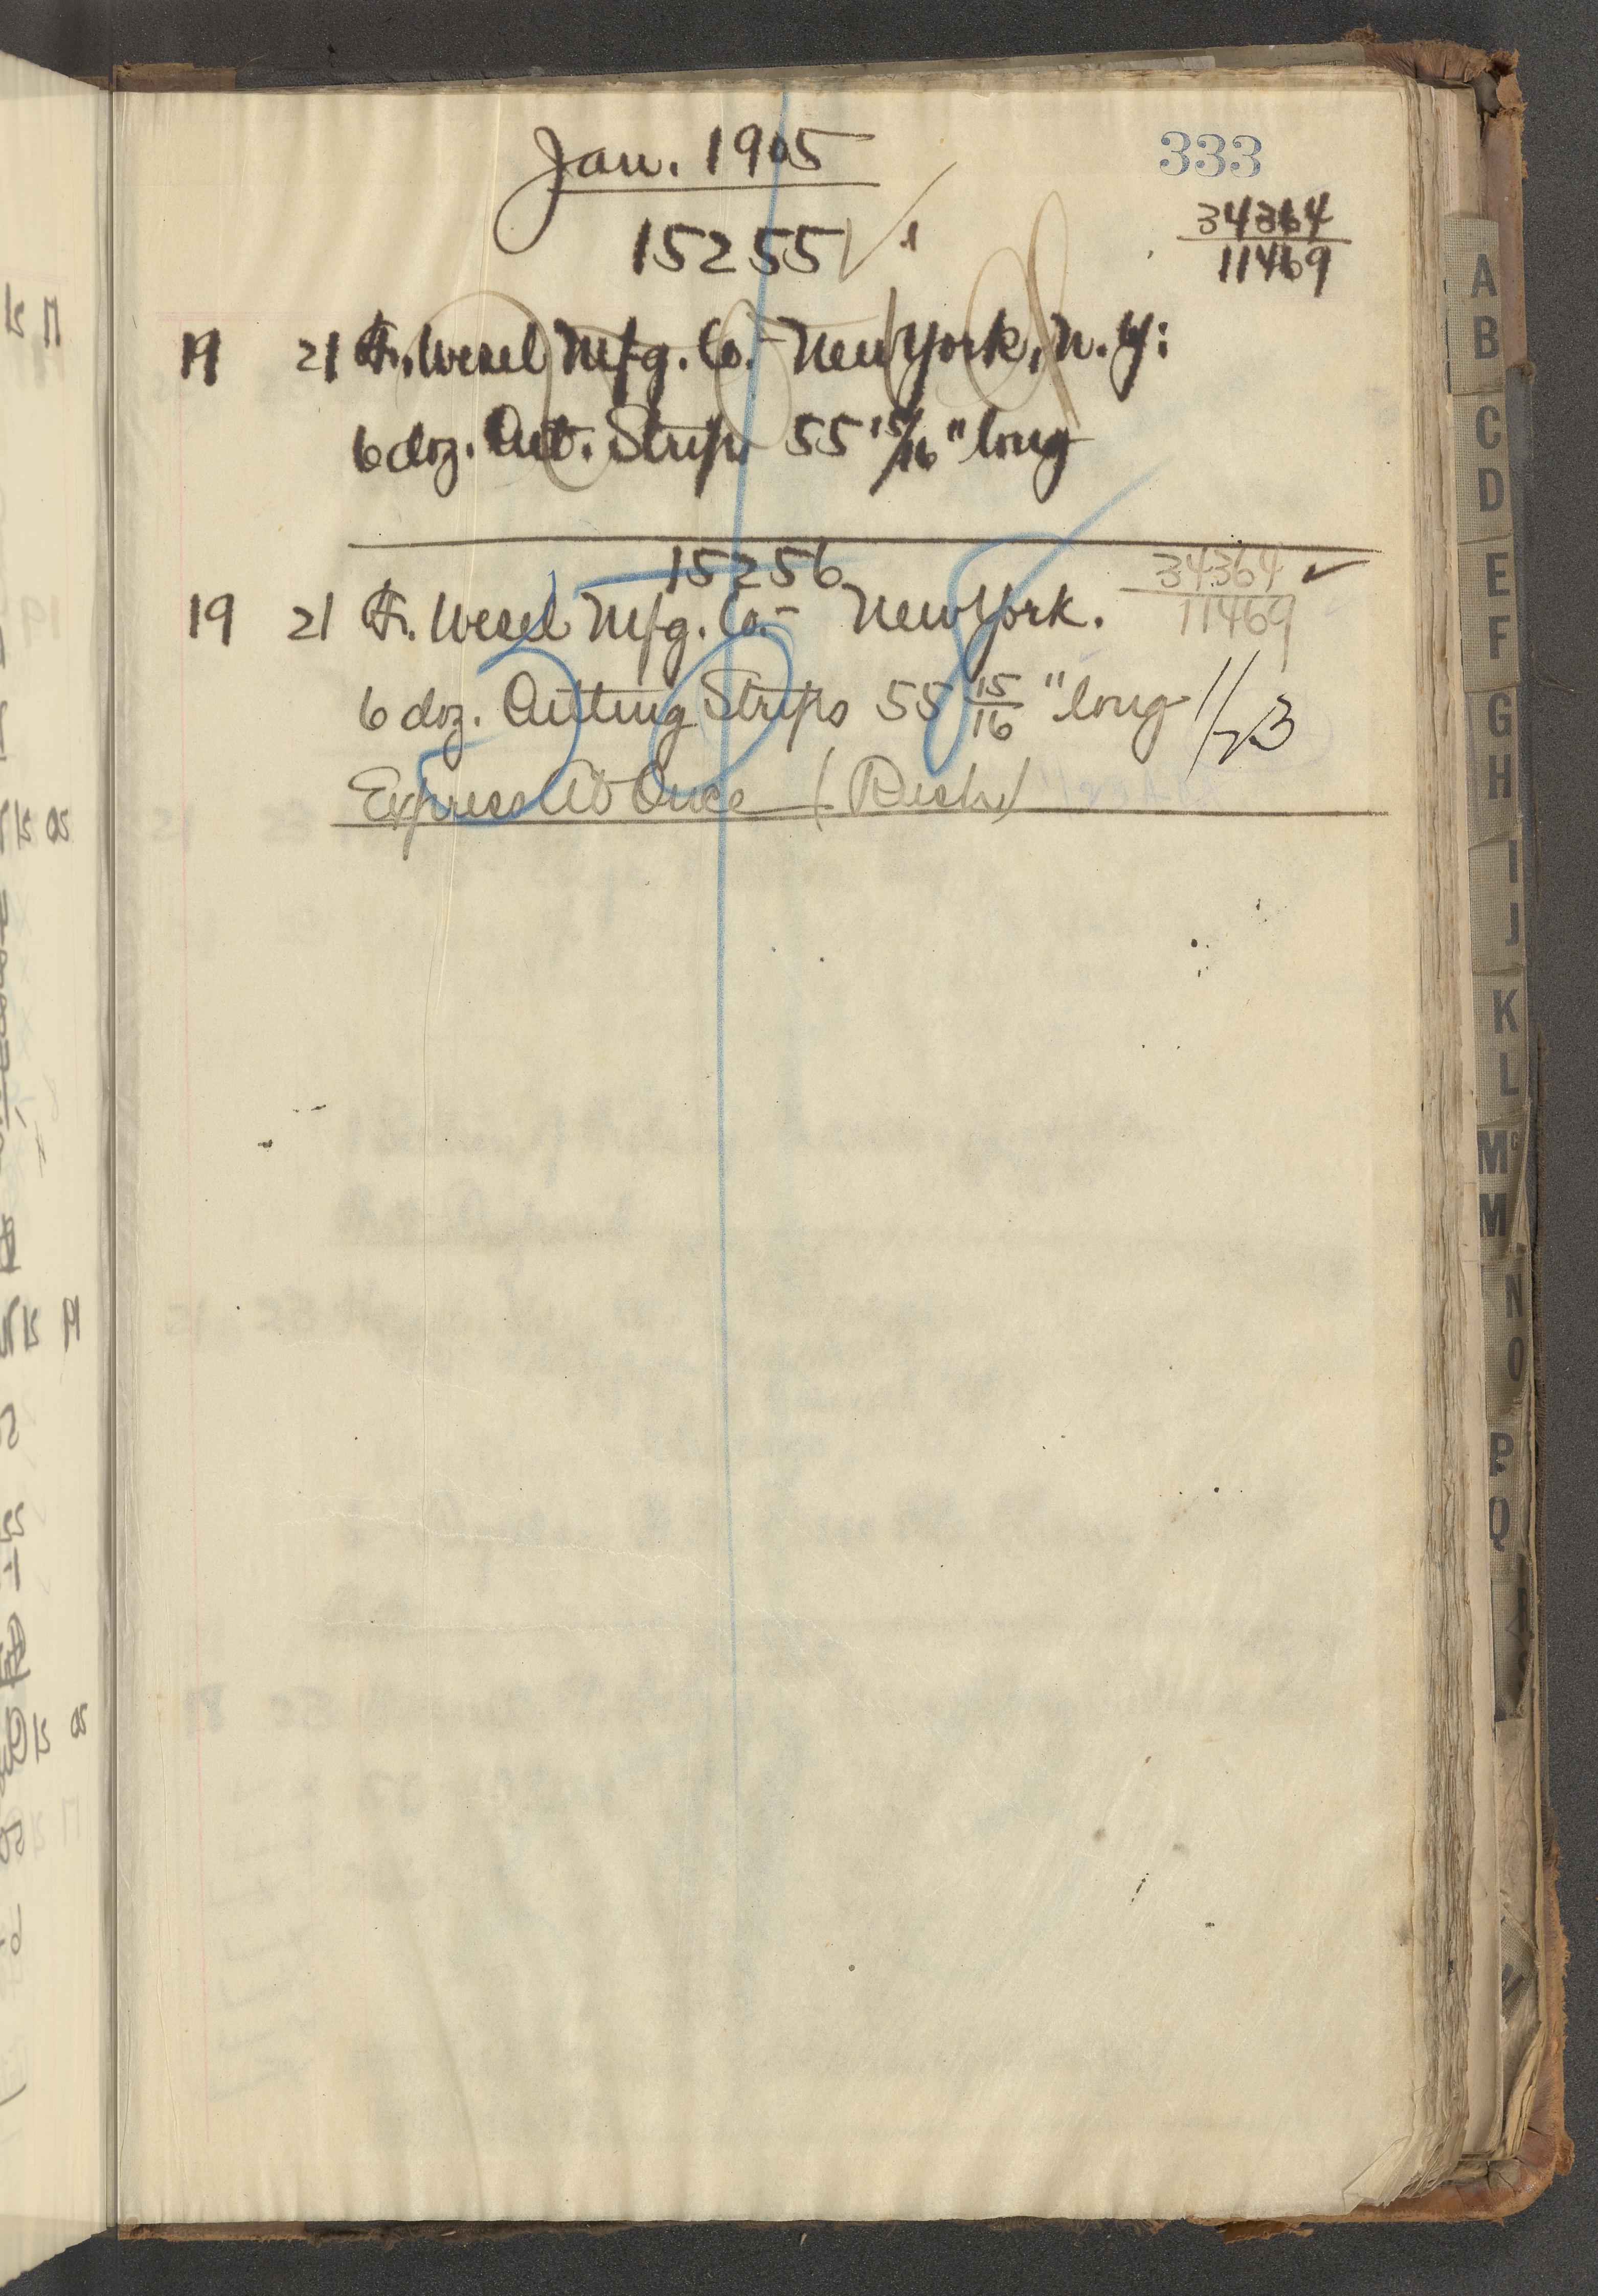 Jan. 1905
333
15255 ✓
34364
11469
19 21 F. Wesel Mfg. Co. - New York, N.Y.
6 doz. Cut. Strips 55 15/16" long
15256
34364 ✓
11469
19 21 F. Wesel Mfg. Co. - New York.
6 doz. Cutting Strips 55 15/16" long
1/23
Express At Once (Rush)
A
B
C
D
E
F
G
H
I
J
K
L
Mc
M
N
O
P
Q